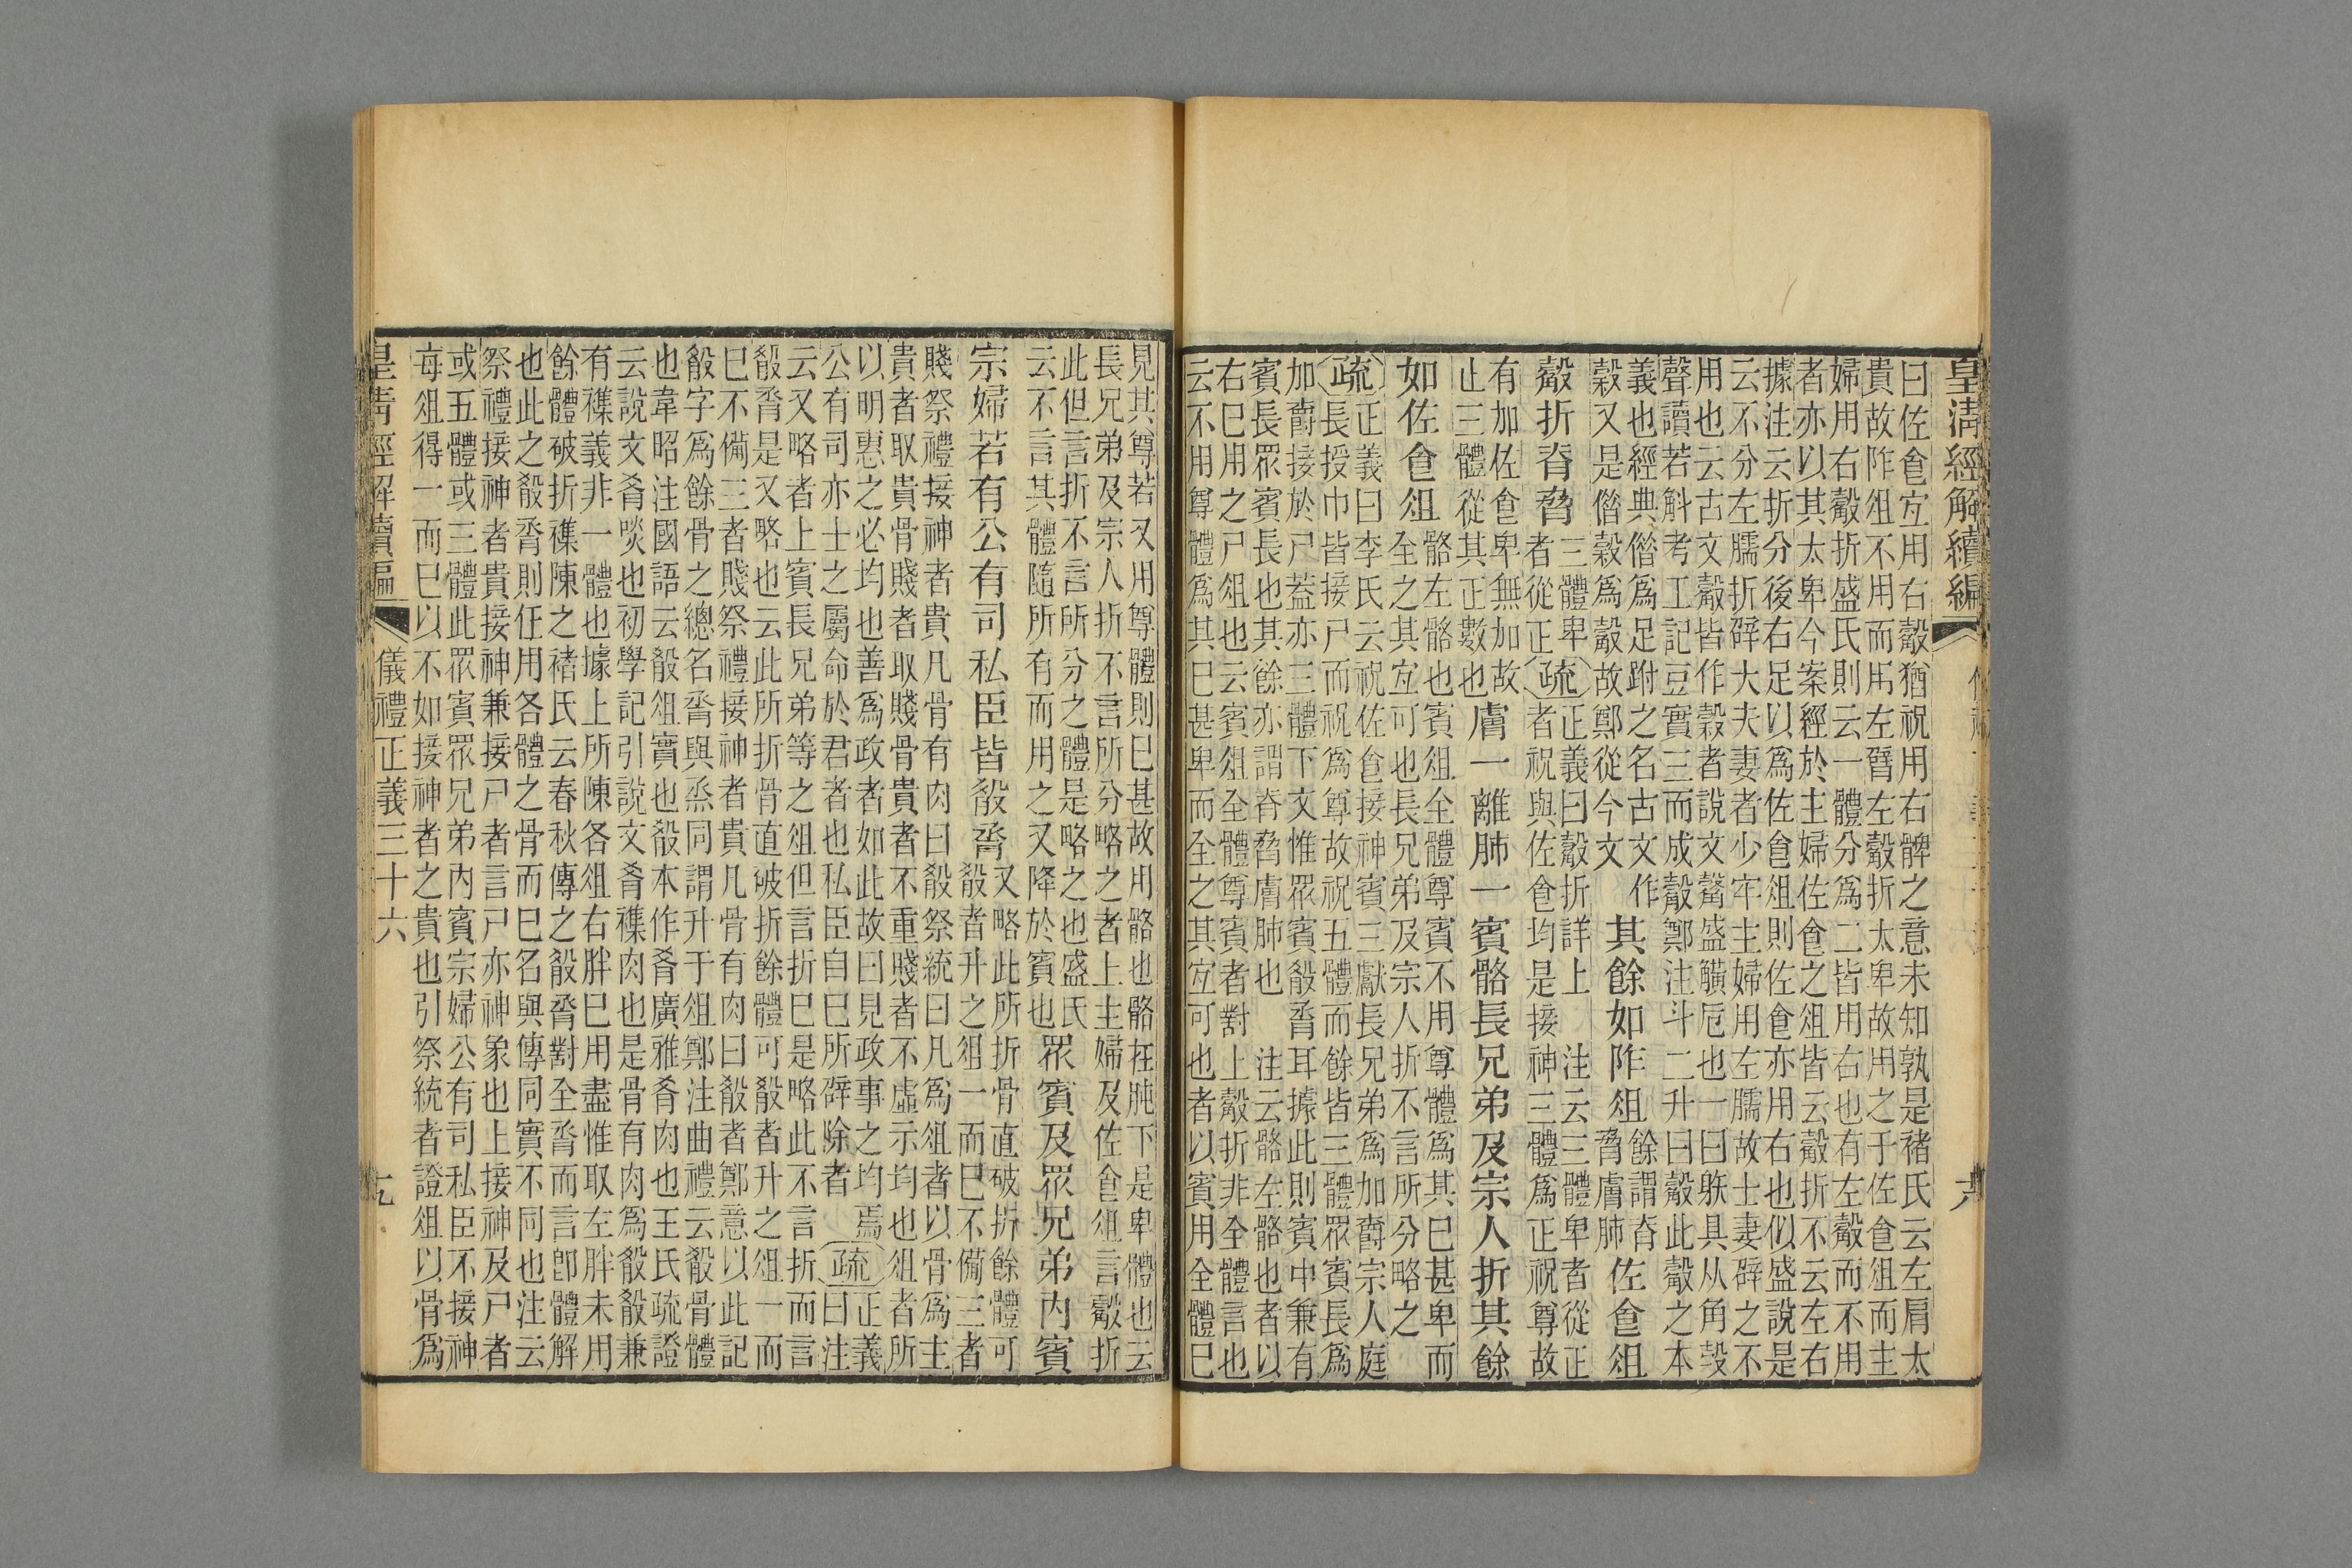 皇淸經解續編
曰佐食宐用右觳猶祝用右髀之意未知孰是褚氏云左肩太
貴故阼俎不用而用左臂左觳折太卑故用之于佐食俎而主
婦用右觳折盛氏則云一體分爲二皆用右也有左觳而不用
者亦以其太卑今案經於主婦佐食之俎皆云觳折不云左右
據注云折分後右足以爲佐食俎則佐食亦用右也似盛說是
云不分左臑折辟大夫妻者少牢主婦用左臑故士妻辟之不
用也云古文觳皆作穀者說文觳盛觵巵也一曰躲具从角㱿
聲讀若斛考工記豆實三而成觳鄭注斗二升曰觳此觳之本
義也經典借爲足跗之名古文作
穀又是借穀爲觳故鄭從今文
其餘如阼俎
餘謂脊
脅膚肺
佐食俎
觳折脊脅
三體卑
者從正
疏
正義曰觳折詳上 注云三體卑者從正
者祝與佐食均是接神三體爲正祝尊故
有加佐食卑無加故
止三體從其正數也
膚一離肺一賓骼長兄弟及宗人折其餘
如佐食俎
骼左骼也賓俎全體尊賓不用尊體爲其已甚卑而
全之其宐可也長兄弟及宗人折不言所分略之
疏
正義曰李氏云祝佐食接神賓三獻長兄弟爲加爵宗人庭
長授巾皆接尸而祝爲尊故祝五體而餘皆三體眾賓長爲
加爵接於尸蓋亦三體下文惟眾賓殽脀耳據此則賓中兼有
賓長眾賓長也其餘亦謂脊脅膚肺也 注云骼左骼也者以
右已用之尸俎也云賓俎全體尊賓者對上觳折非全體言也
云不用尊體爲其已甚卑而全之其宐可也者以賓用全體已
見其尊若又用尊體則已甚故用骼也骼在肫下是卑體也云
長兄弟及宗人折不言所分略之者上主婦及佐食俎言觳折
此但言折不言所分之體是略之也盛氏
云不言其體隨所有而用之又降於賓也
眾賓及眾兄弟內賓
宗婦若有公有司私臣皆殽脀
又略此所折骨直破折餘體可
殽者升之俎一而已不備三者
賤祭禮接神者貴凡骨有肉曰殽祭統曰凡爲俎者以骨爲主
貴者取貴骨賤者取賤骨貴者不重賤者不虛示均也俎者所
以明惠之必均也善爲政者如此故曰見政事之均焉
公有司亦士之屬命於君者也私臣自己所辟除者
疏
正義
曰注
云又略者上賓長兄弟等之俎但言折已是略此不言折而言
殽脀是又略也云此所折骨直破折餘體可殽者升之俎一而
已不備三者賤祭禮接神者貴凡骨有肉曰殽者鄭意以此記
殽字爲餘骨之總名脀與烝同謂升于俎鄭注曲禮云殽骨體
也韋昭注國語云殽俎實也殽本作肴廣雅肴肉也王氏疏證
云說文肴啖也初學記引說文肴襍肉也是骨有肉爲殽殽兼
有襍義非一體也據上所陳各俎右胖已用盡惟取左胖未用
餘體破折襍陳之褚氏云春秋傳之殽脀對全脀而言卽體解
也此之殽脀則任用各體之骨而已名與傳同實不同也注云
祭禮接神者貴接神兼接尸者言尸亦神象也上接神及尸者
或五體或三體此眾賓眾兄弟內賓宗婦公有司私臣不接神
每俎得一而已以不如接神者之貴也引祭統者證俎以骨爲
皇淸經解續編 儀禮正義三十六